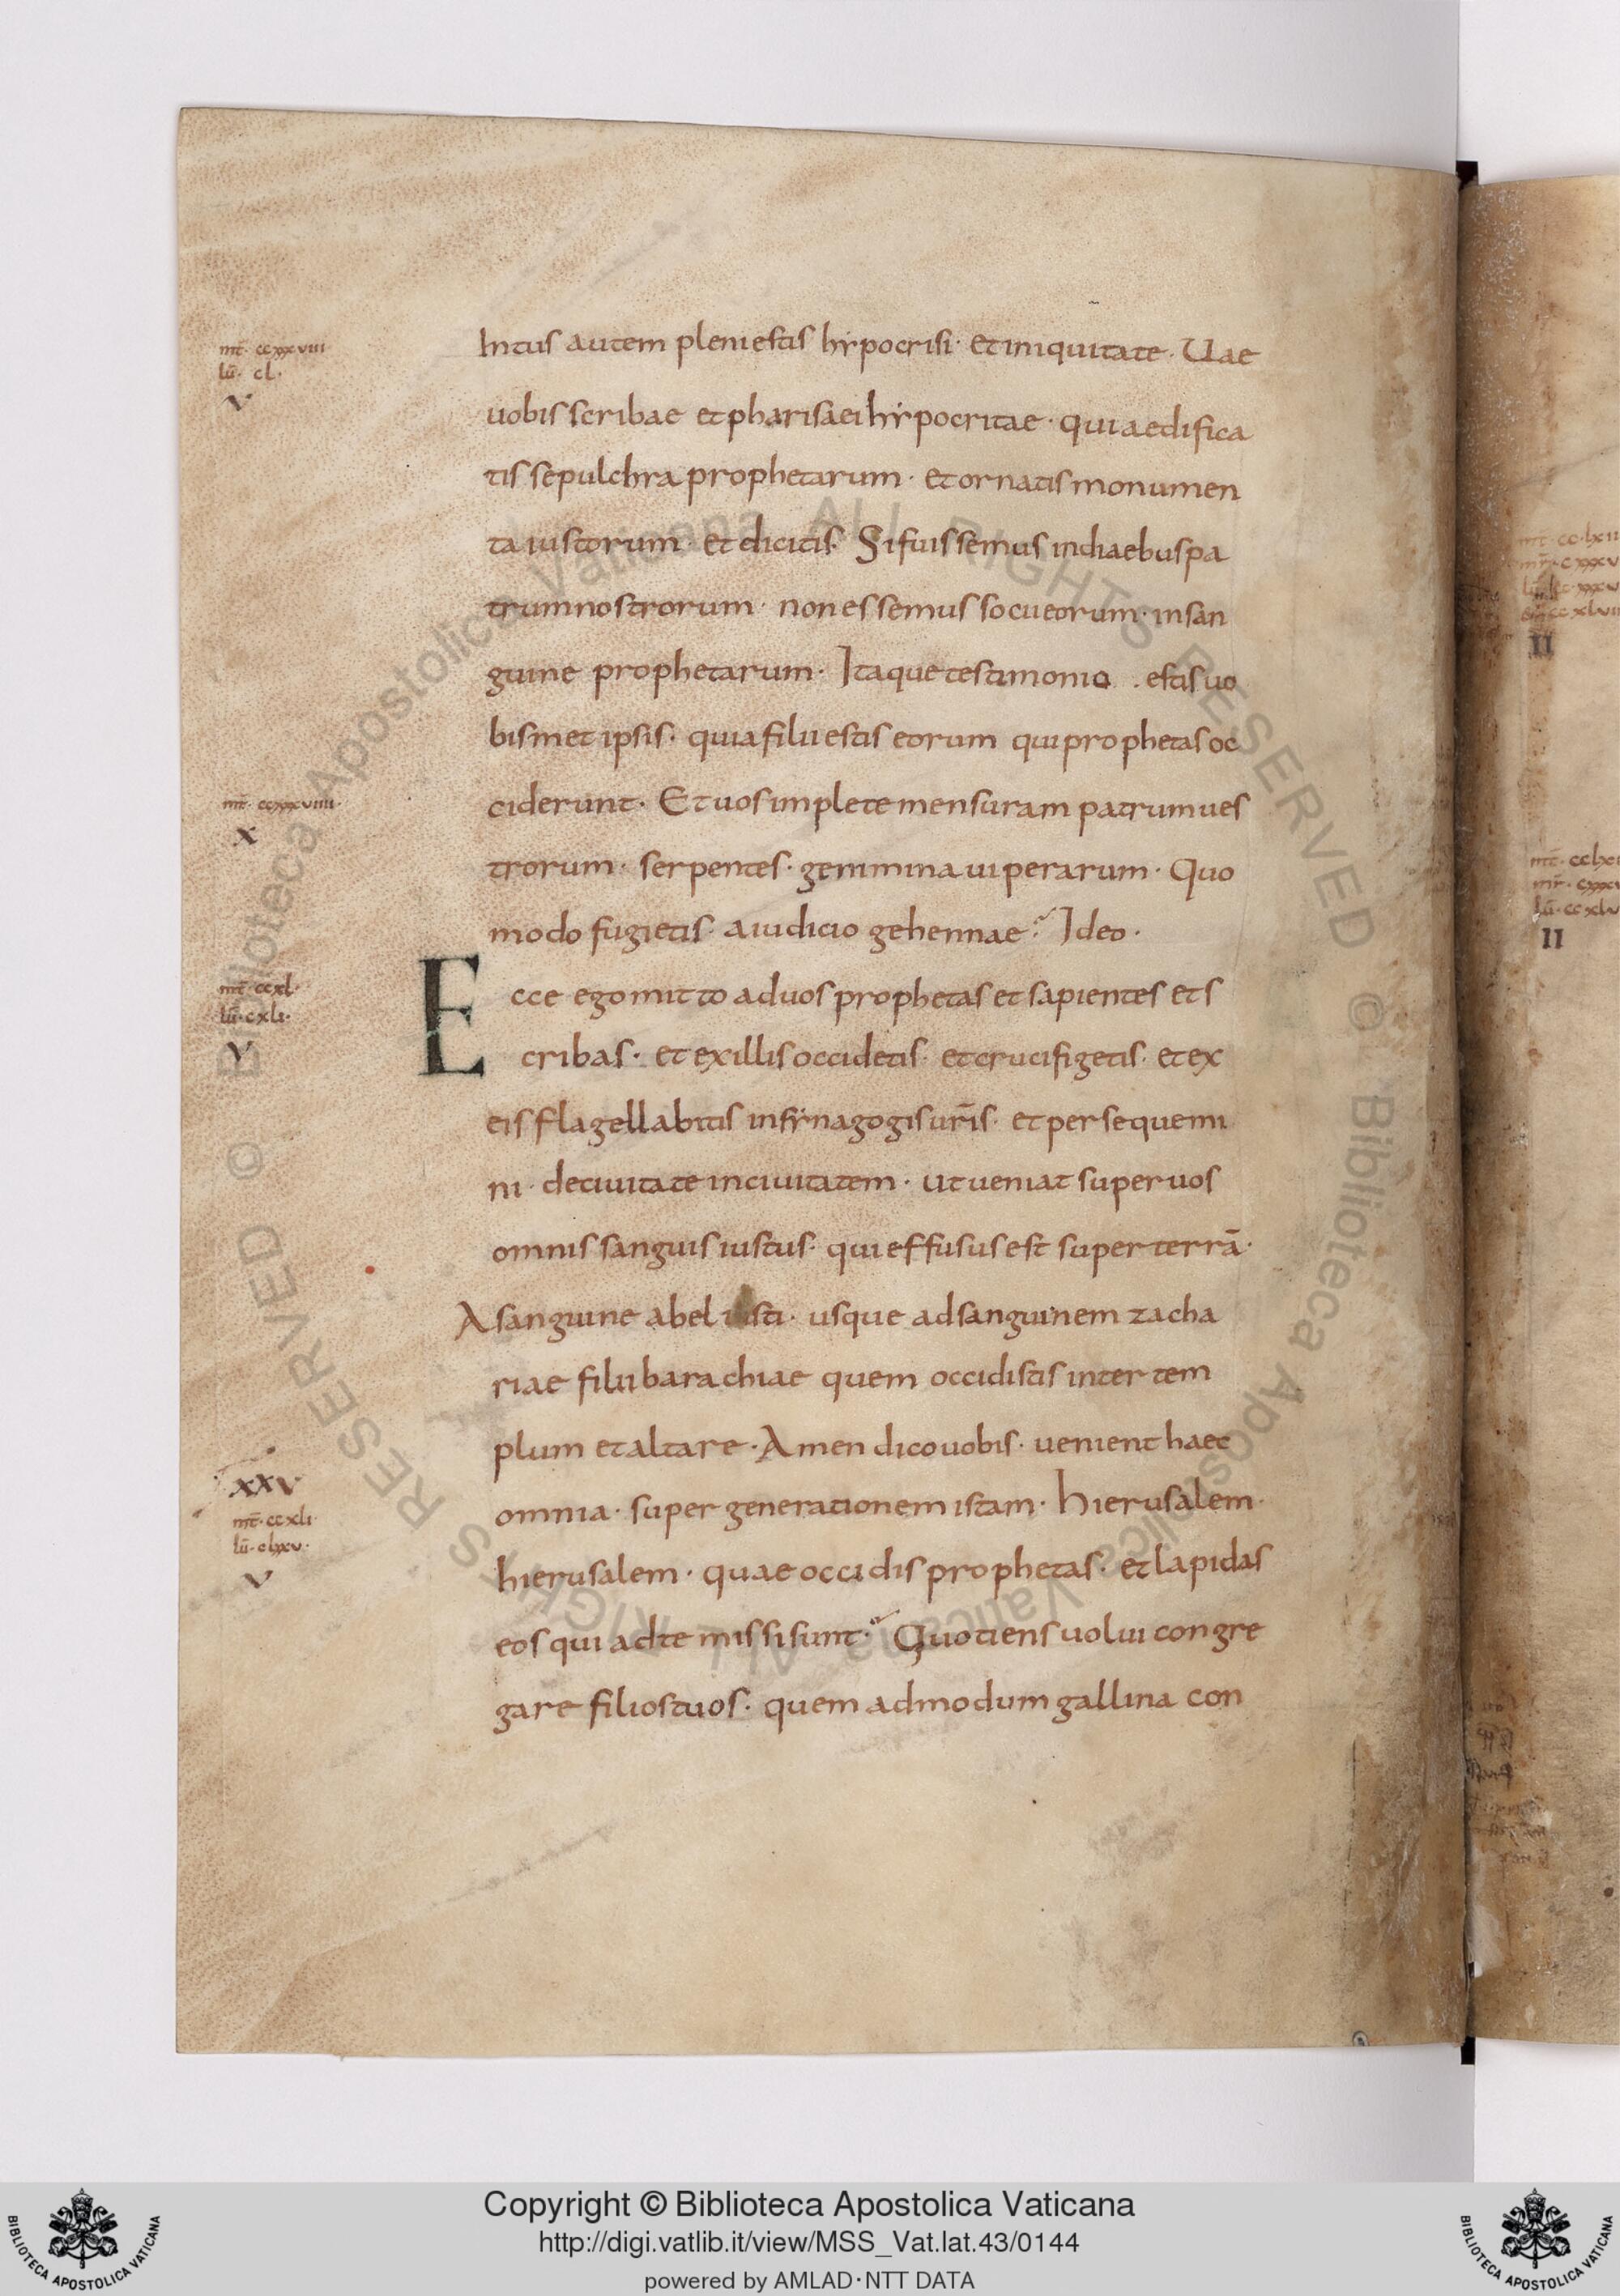 mt̄· ccxxxviii
lū· cl·
v
Intus autem pleni estis hypocrisi· et iniquitate· Uae
uobis scribae et pharisaei hypocritae· qui aedifica
tis sepulchra prophetarum· et ornatis monumen
ta iustorum· et dicitis· Si fuissemus in diaebus pa
trum nostrorum· non essemus socii eorum· in san
guine prophetarum· Itaque testimonio . estis uo
bismet ipsis· quia filii estis eorum qui prophetas oc
mt̄· ccxxxviiii·
x
ciderunt· Et uos implete mensuram patrum ues
trorum· serpentes· genimina uiperarum· Quo
modo fugietis· a iudicio gehennae? Ideo·
mt̄· ccxl·
lū· cxli·
v
Ecce ego mitto ad uos prophetas et sapientes et s
cribas· et ex illis occidetis· et crucifigetis· et ex
eis flagellabitis in synagogis ur̄is· et persequemi
ni· de ciuitate in ciuitatem· ut ueniat super uos
omnis sanguis iustus· qui effusus est super terrā·
A sanguine abel iusti· usque ad sanguinem zacha
riae filii barachiae quem occidistis inter tem
plum et altare· Amen dico uobis· uenient haec
xxv
mt̄· ccxli·
lū· clxxv·
v
omnia· super generationem istam· hierusalem·
hierusalem· quae occidis prophetas· et lapidas
eos qui ad te missi sunt? Quotiens uolui congre
gare filios tuos· quem admodum gallina con
mr̄· cxxxv
II
II
© Biblioteca Apostolica Vaticana ALL RIGHTS RESERVED © Biblioteca Apostolica Vaticana ALL RIGHTS RESERVED
Copyright © Biblioteca Apostolica Vaticana
http://digi.vatlib.it/view/MSS_Vat.lat.43/0144
powered by AMLAD·NTT DATA
BIBLIOTECA APOSTOLICA VATICANA
BIBLIOTECA APOSTOLICA VATICANA